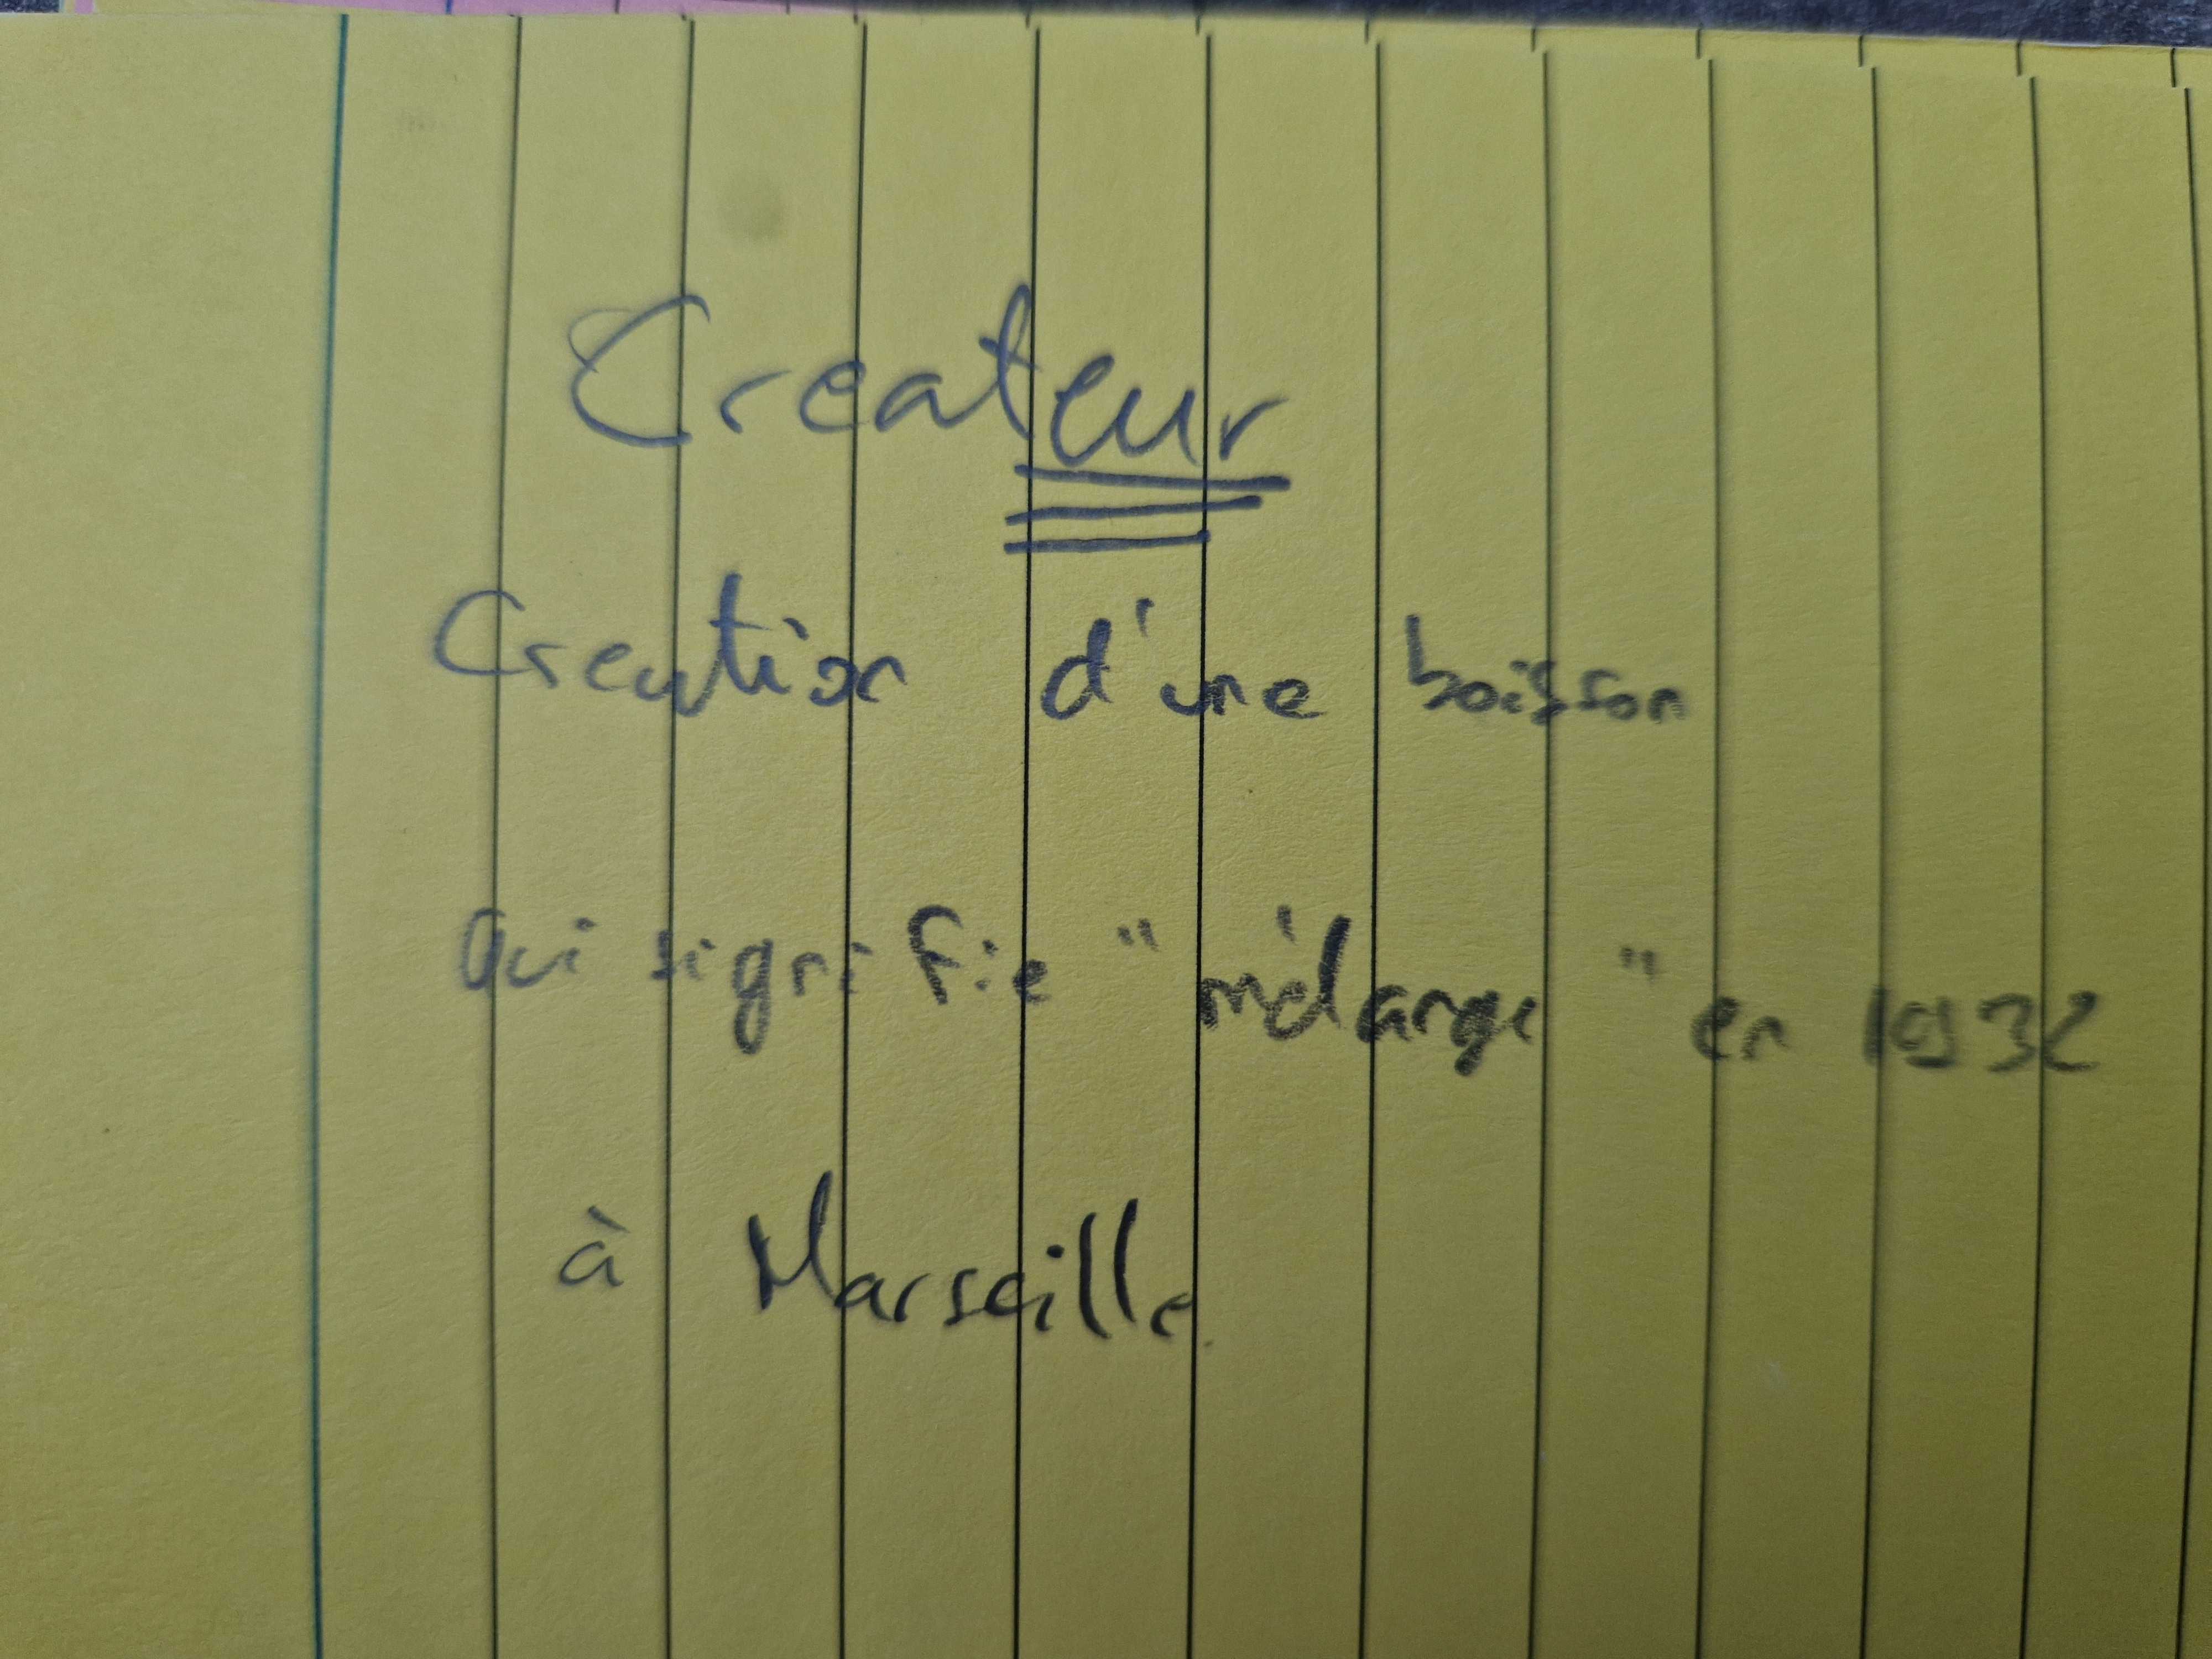 Createur
Creation d'une boisson
Qui signifie "mélange" en 1932
à Marseille